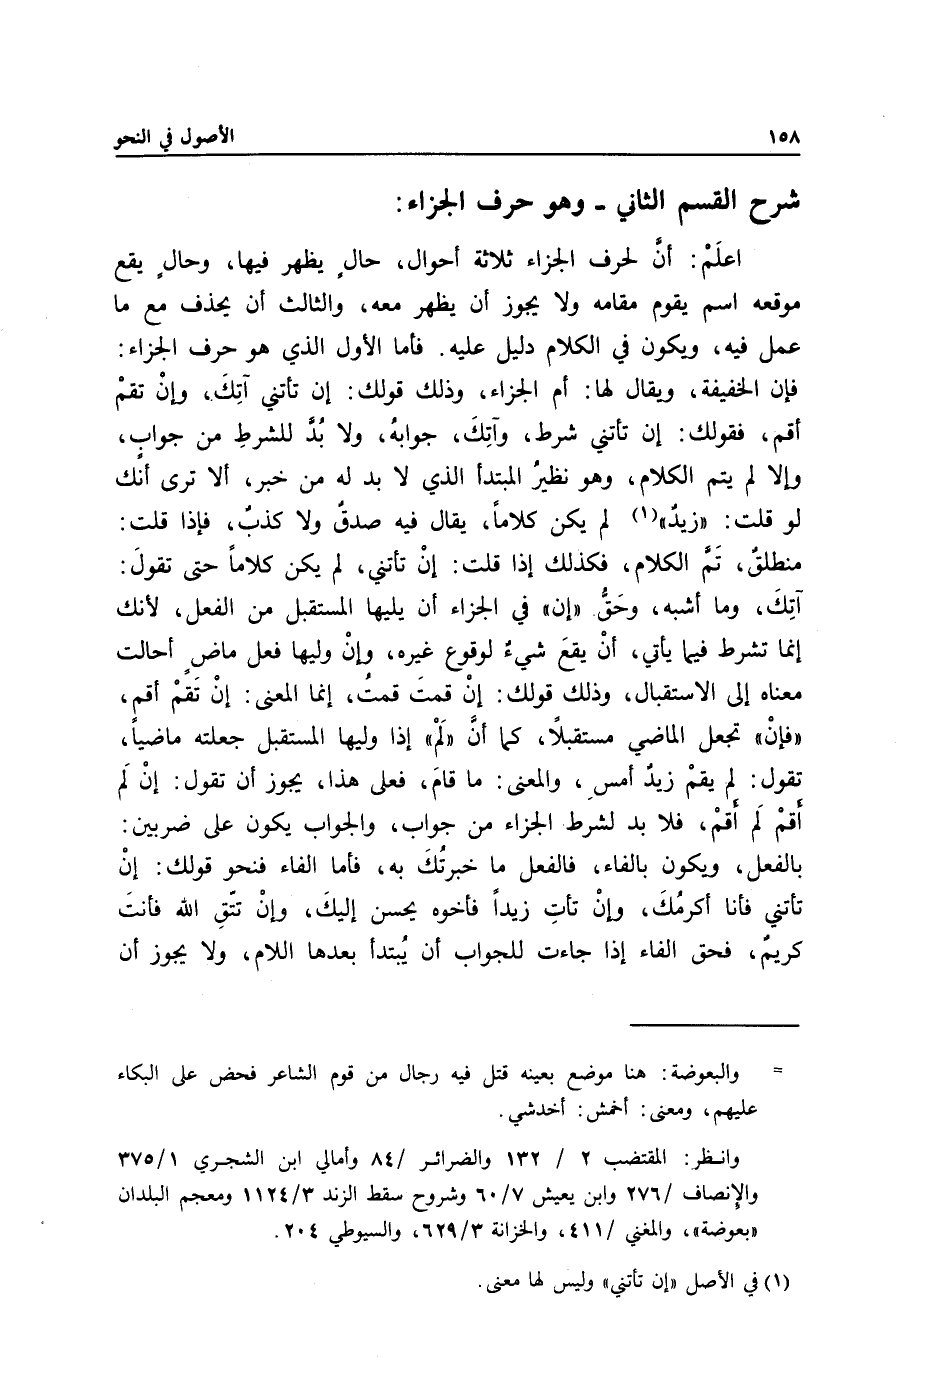 ١٥٨ الأصول في النحو
شرح القسم الثاني ـ وهو حرف الجزاء:
اعلَمْ: أنَّ لحرف الجزاء ثلاثة أحوال، حالٍ يظهر فيها، وحالٍ يقع
موقعه اسم يقوم مقامه ولا يجوز أن يظهر معه، والثالث أن يحذف مع ما
عمل فيه، ويكون في الكلام دليل عليه. فأما الأول الذي هو حرف الجزاء:
فإن الخفيفة، ويقال لها: أم الجزاء، وذلك قولك: إن تأتني آتِكَ، وإنْ تقمْ
أقم، فقولك: إن تأتني شرط، وآتِكَ، جوابهُ، ولا بُدَّ للشرطِ من جوابٍ،
وإلا لم يتم الكلام، وهو نظيرُ المبتدأ الذي لا بد له من خبر، ألا ترى أنك
لو قلت: «زيدٌ»(١) لم يكن كلاماً، يقال فيه صدقٌ ولا كذبٌ، فإذا قلت:
منطلقٌ، تَمَّ الكلام، فكذلك إذا قلت: إنْ تأتني، لم يكن كلاماً حتى تقولَ:
آتِكَ، وما أشبه، وحَقُّ «إن» في الجزاء أن يليها المستقبل من الفعل، لأنك
إنما تشرط فيما يأتي، أنْ يقعَ شيءٌ لوقوع غيره، وإنْ وليها فعل ماضٍ أحالت
معناه إلى الاستقبال، وذلك قولك: إنْ قمتَ قمتُ، إنما المعنى: إنْ تَقمْ أقم،
«فإنْ» تجعل الماضي مستقبلاً، كما أنَّ «لَمْ» إذا وليها المستقبل جعلته ماضياً،
تقول: لم يقمْ زيدٌ أمسِ، والمعنى: ما قامَ، فعلى هذا، يجوز أن تقول: إنْ لَم
أَقمْ لَم أَقمْ، فلا بد لشرط الجزاء من جواب، والجواب يكون على ضربين:
بالفعل، ويكون بالفاء، فالفعل ما خبرتُكَ به، فأما الفاء فنحو قولك: إنْ
تأتني فأنا أكرمُكَ، وإنْ تأتِ زيداً فأخوه يحسن إليكَ، وإنْ تتّقِ الله فأنتَ
كريمٌ، فحق الفاء إذا جاءت للجواب أن يُبتدأ بعدها اللام، ولا يجوز أن
= والبعوضة: هنا موضع بعينه قتل فيه رجال من قوم الشاعر فحض على البكاء
عليهم، ومعنى: أخمش: أخدشي.
وانظر: المقتضب ٢ / ١٣٢ والضرائر /٨٤ وأمالي ابن الشجري ٣٧٥/١
والإنصاف /٢٧٦ وابن يعيش ٦٠/٧ وشروح سقط الزند ١١٢٤/٣ ومعجم البلدان
«بعوضة»، والمغني /٤١١، والخزانة ٦٢٩/٣، والسيوطي ٢٠٤.
(١) في الأصل «إن تأتني» وليس لها معنى.